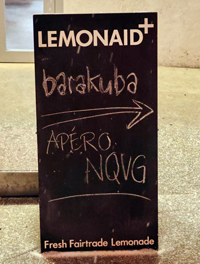 LEMONAID+
barakuba
APÉRO
NQVG
Fresh Fairtrade Lemonade